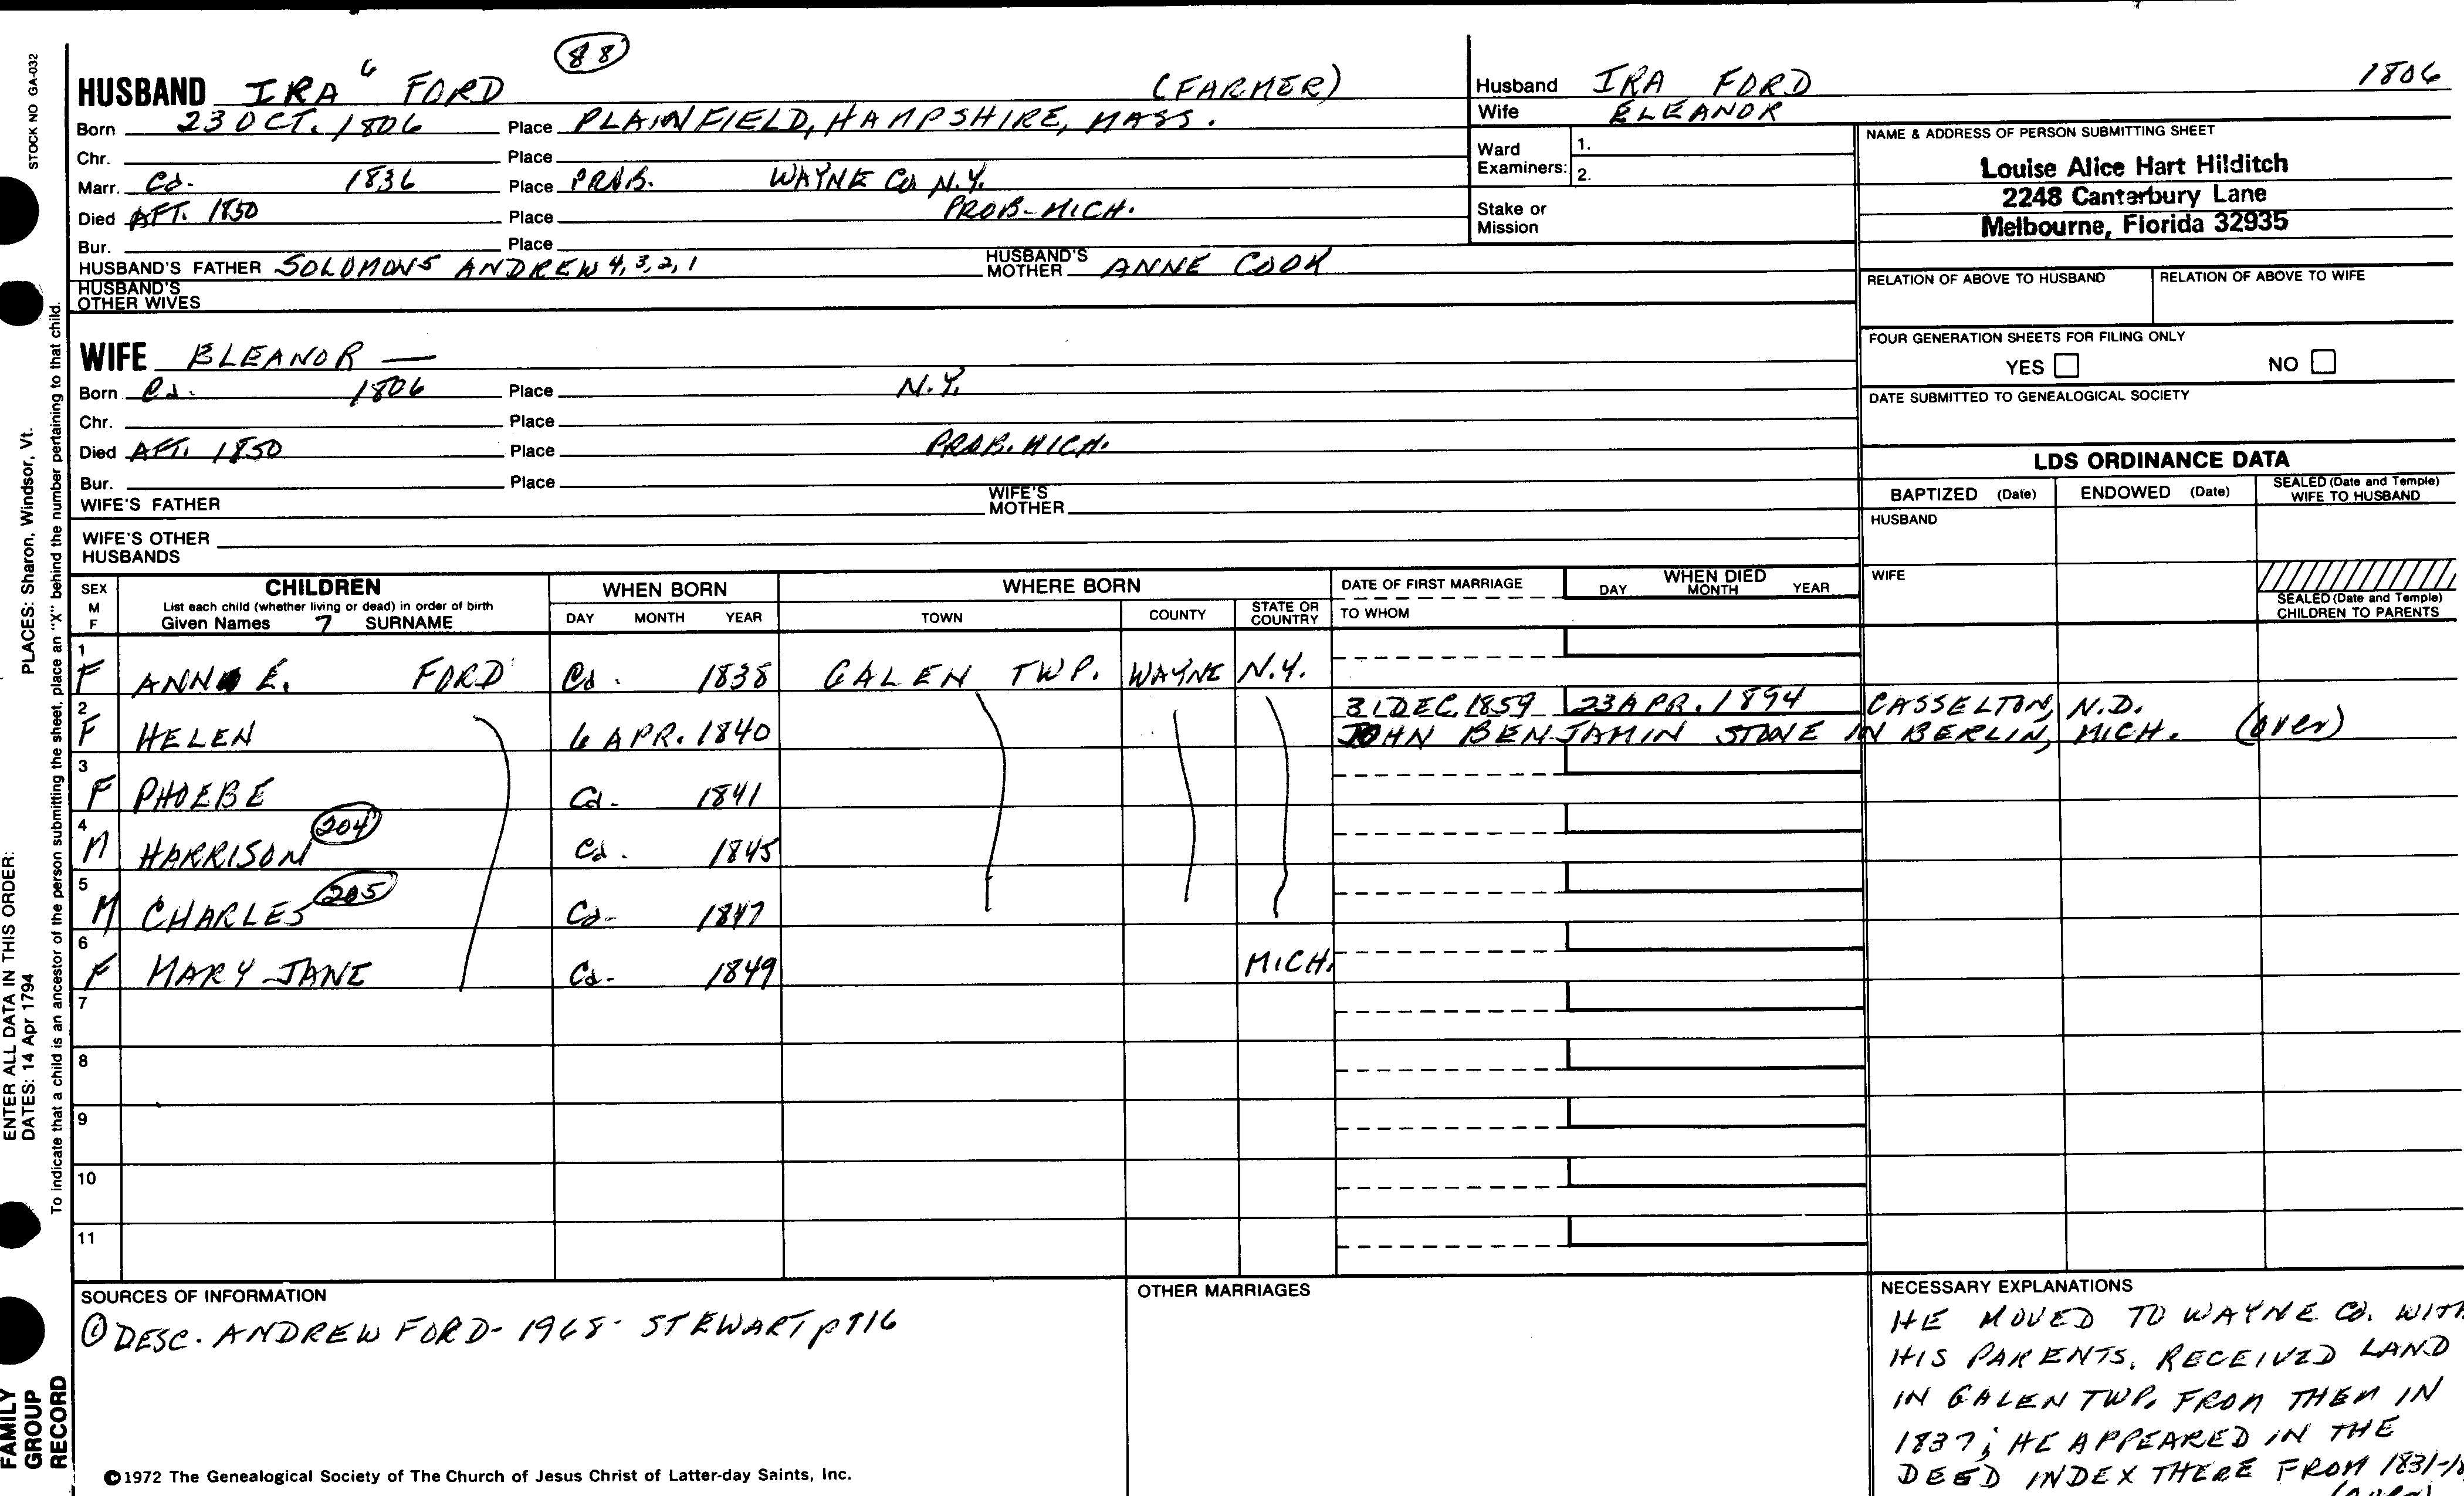 STOCK NO GA-032
PLACES: Sharon, Windsor, Vt.
ENTER ALL DATA IN THIS ORDER:
DATES: 14 Apr 1794
To indicate that a child is an ancestor of the person submitting the sheet, place an "X" behind the number pertaining to that child.
FAMILY GROUP RECORD
88
HUSBAND IRA 6 FORD (FARMER)
Born 23 OCT. 1806 Place PLAINFIELD, HAMPSHIRE, MASS.
Chr. Place
Marr. Ca. 1836 Place PROB. WAYNE Co N.Y.
Died AFT. 1850 Place PROB. MICH.
Bur. Place
HUSBAND'S FATHER SOLOMON5 ANDREW 4,3,2,1 HUSBAND'S MOTHER ANNE COOK
HUSBAND'S OTHER WIVES
WIFE ELEANOR —
Born Ca. 1806 Place N.Y.
Chr. Place
Died AFT. 1850 Place PROB. MICH.
Bur. Place
WIFE'S FATHER WIFE'S MOTHER
WIFE'S OTHER HUSBANDS
Husband IRA FORD 1806
Wife ELEANOR
Ward Examiners: 1.
2.
Stake or Mission
NAME & ADDRESS OF PERSON SUBMITTING SHEET
Louise Alice Hart Hilditch
2248 Canterbury Lane
Melbourne, Florida 32935
RELATION OF ABOVE TO HUSBAND RELATION OF ABOVE TO WIFE
FOUR GENERATION SHEETS FOR FILING ONLY
YES NO
DATE SUBMITTED TO GENEALOGICAL SOCIETY
LDS ORDINANCE DATA
BAPTIZED (Date) ENDOWED (Date) SEALED (Date and Temple) WIFE TO HUSBAND
HUSBAND
WIFE
SEALED (Date and Temple) CHILDREN TO PARENTS
SEX M F CHILDREN WHEN BORN WHERE BORN DATE OF FIRST MARRIAGE WHEN DIED
List each child (whether living or dead) in order of birth
Given Names 7 SURNAME DAY MONTH YEAR TOWN COUNTY STATE OR COUNTRY TO WHOM DAY MONTH YEAR
1 F ANN E. FORD Ca. 1838 GALEN TWP. WAYNE N.Y.
2 F HELEN 6 APR. 1840 31 DEC. 1859 23 APR. 1894 CASSELTON, N.D.
JOHN BENJAMIN STONE IN BERLIN, MICH. (over)
3 F PHOEBE Ca. 1841
4 M HARRISON 204 Ca. 1845
5 M CHARLES 205 Ca. 1847
6 F MARY JANE Ca. 1849 MICH.
7
8
9
10
11
SOURCES OF INFORMATION
① DESC. ANDREW FORD - 1968 - STEWART p 116
OTHER MARRIAGES
NECESSARY EXPLANATIONS
HE MOVED TO WAYNE CO. WITH
HIS PARENTS, RECEIVED LAND
IN GALEN TWP. FROM THEM IN
1837; HE APPEARED IN THE
DEED INDEX THERE FROM 1831-
©1972 The Genealogical Society of The Church of Jesus Christ of Latter-day Saints, Inc.